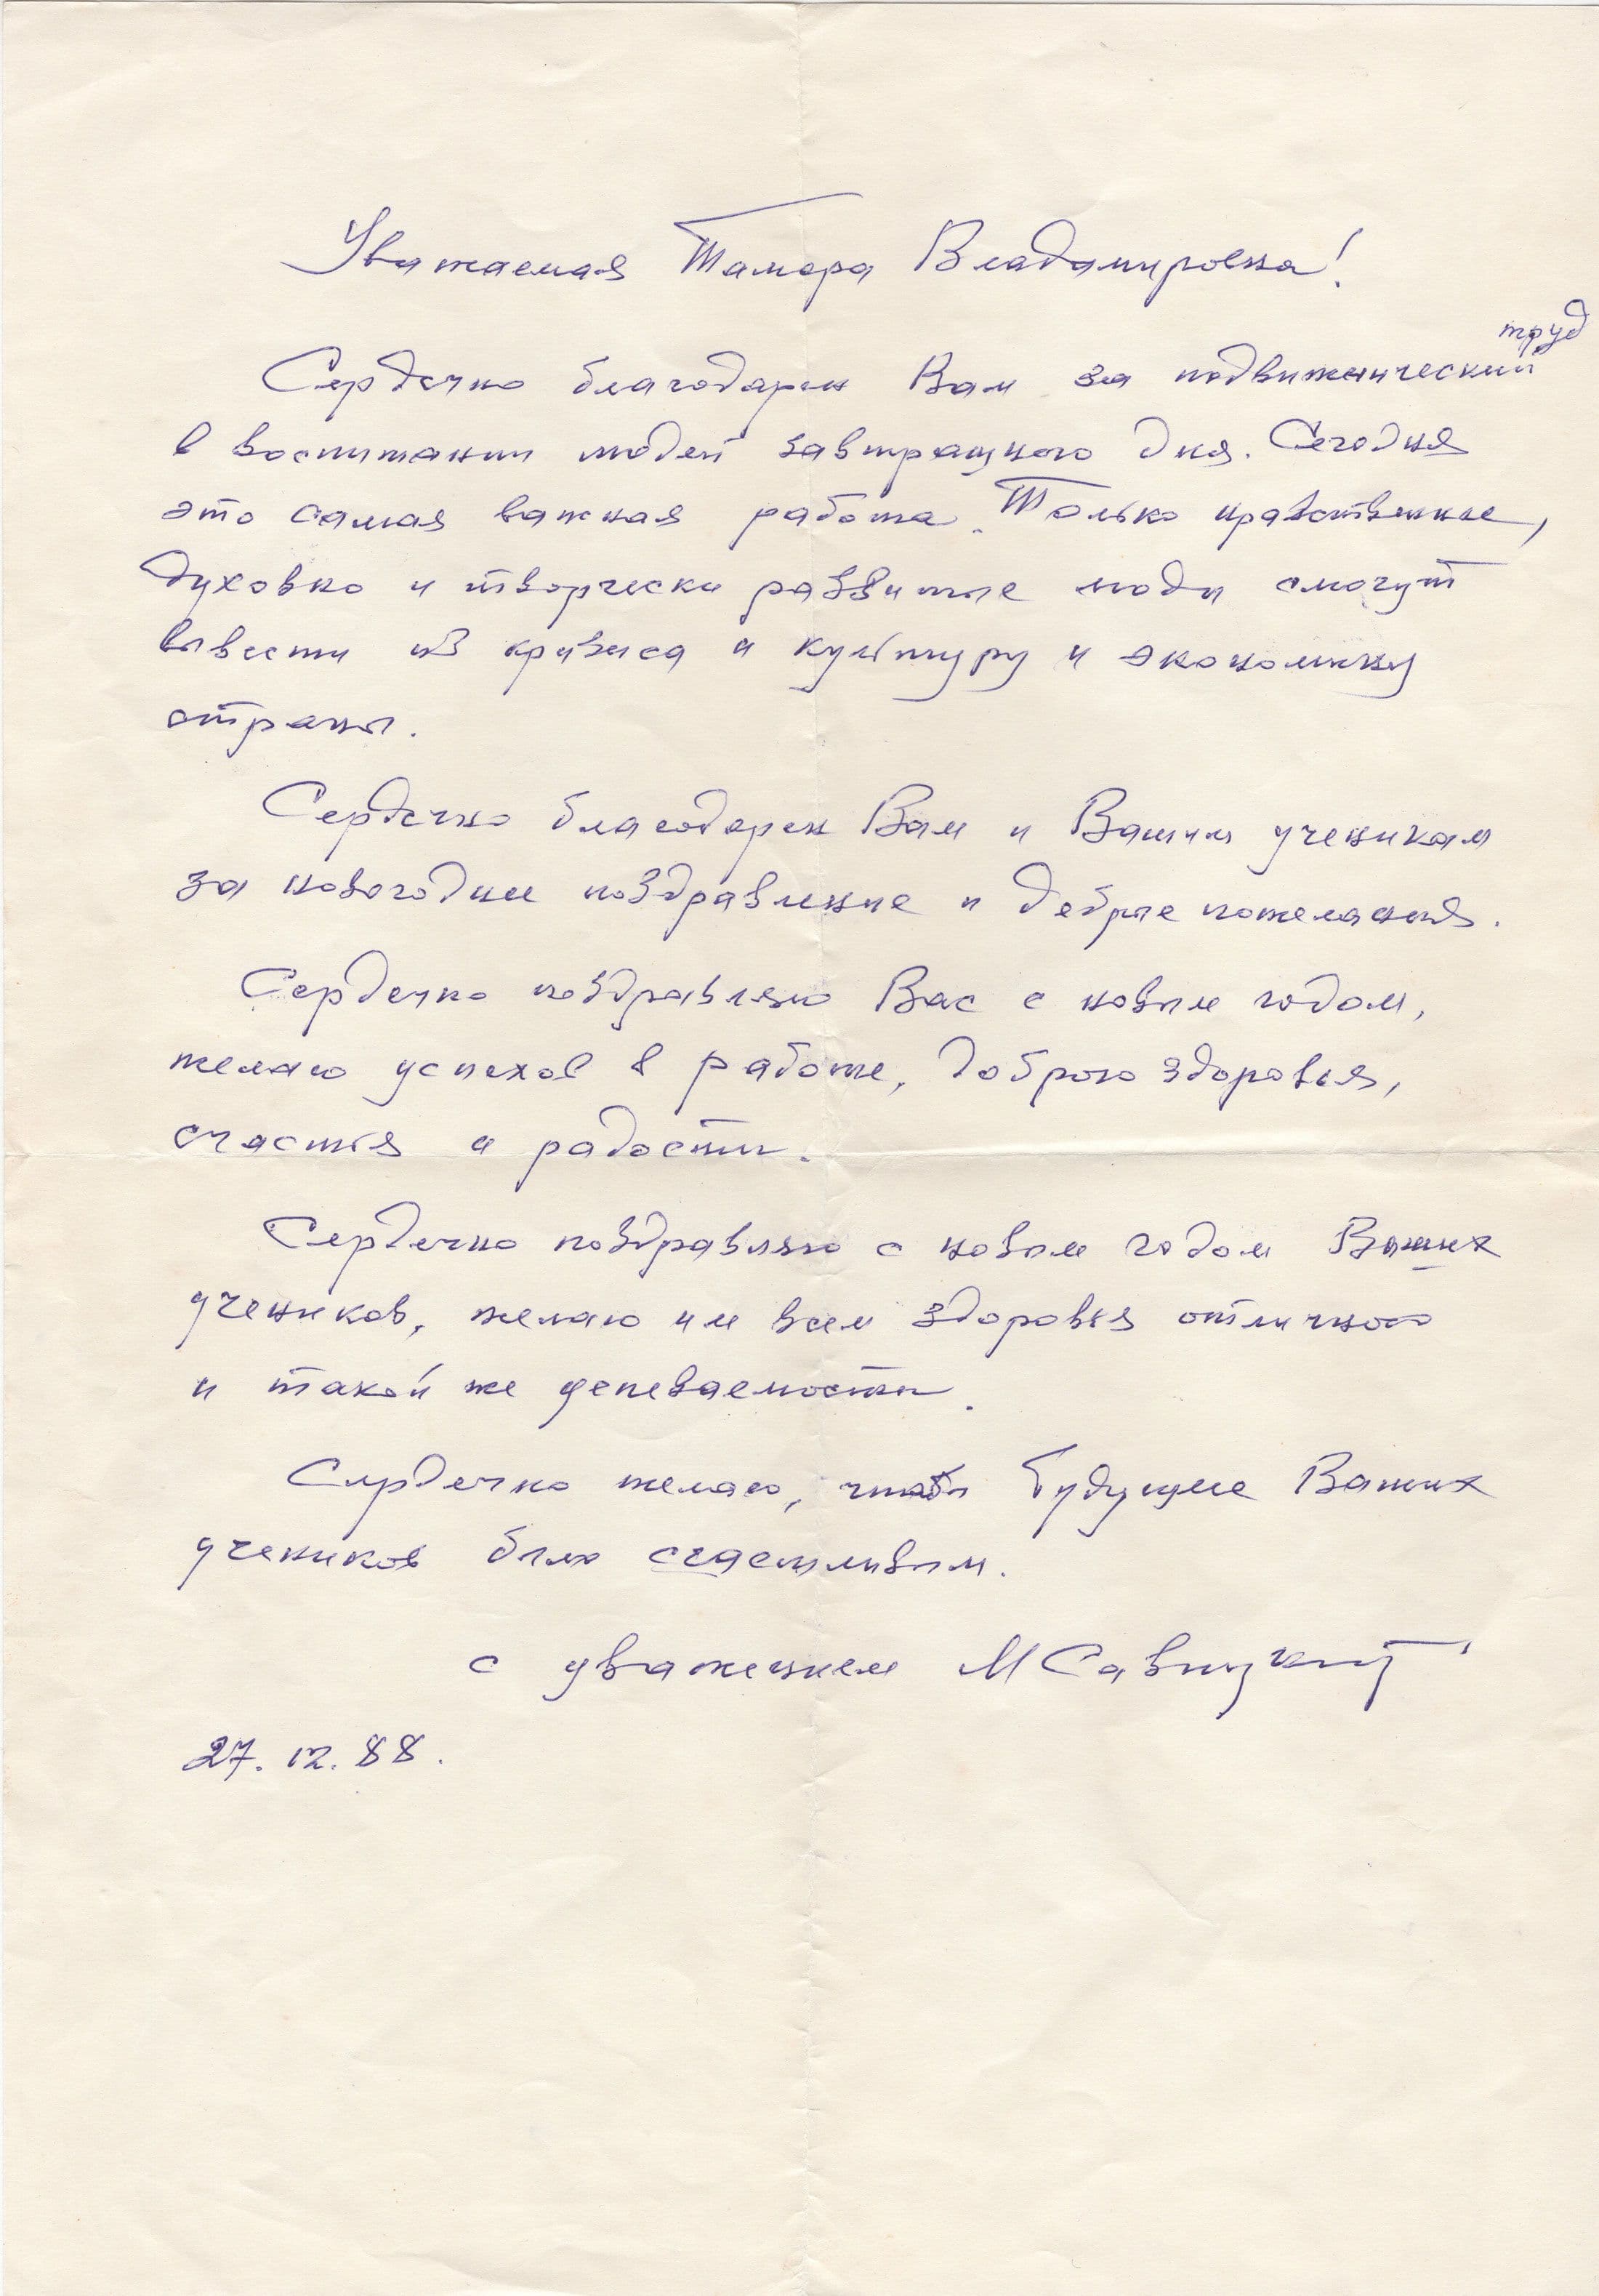 Уважаемая Тамара Владимировна!
Сердечно благодарен Вам за подвижнический труд
в воспитании людей завтрашнего дня. Сегодня
это самая важная работа. Только нравственные,
духовно и творчески развитые люди смогут
вывести из кризиса и культуру и экономику
страны.
Сердечно благодарен Вам и Вашим ученикам
за новогоднее поздравление и добрые пожелания.
Сердечно поздравляю Вас с новым годом,
желаю успехов в работе, доброго здоровья,
счастья и радости.
Сердечно поздравляю с новым годом Ваших
учеников, желаю им всем здоровья отличного
и такой же успеваемости.
Сердечно желаю, чтобы будущее Ваших
учеников было счастливым.
с уважением М Савицкий
27.12.88.